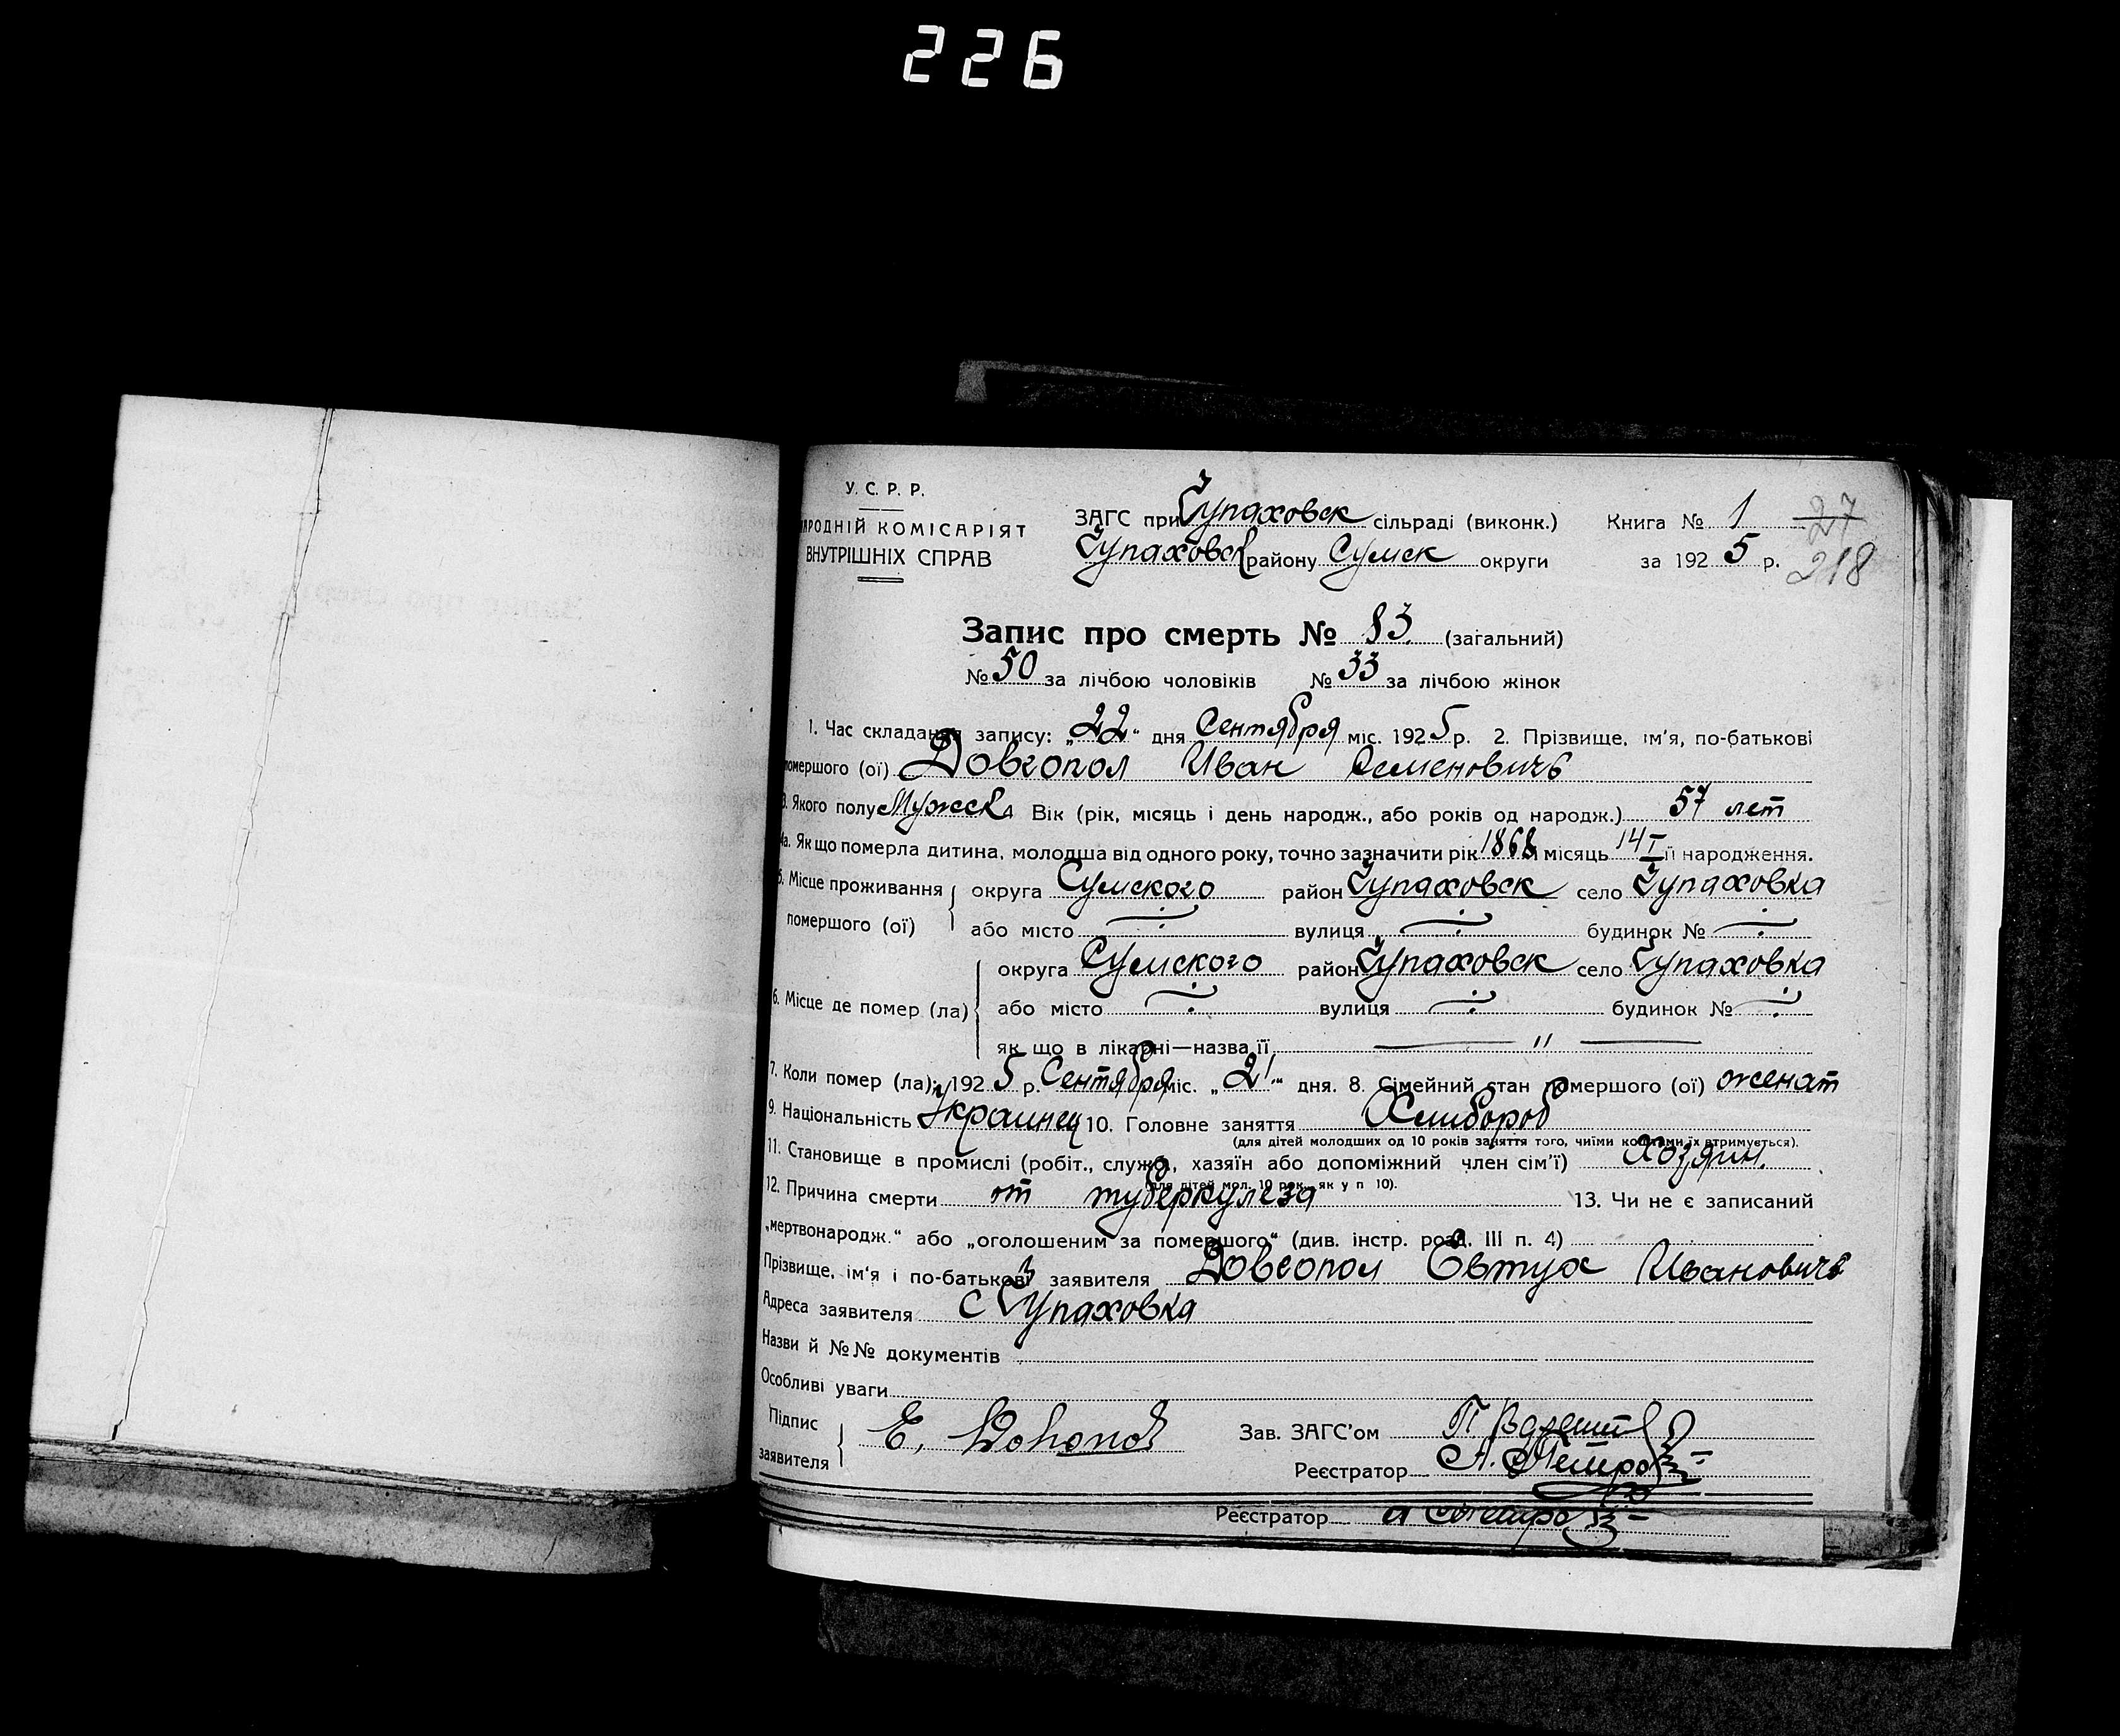 226
У. С. Р. Р.
НАРОДНІЙ КОМІСАРІЯТ
ВНУТРІШНІХ СПРАВ
ЗАГС при Чупаховск сільраді (виконк.)
Чупаховск району Сумск округи
Книга № 1
за 1925 р.
27
218
Запис про смерть № 83 (загальний)
№ 50 за лічбою чоловіків № 33 за лічбою жінок
1. Час складання запису: „22“ дня Сентября міс. 1925 р. 2. Прізвище, ім'я, по-батькові
помершого (ої) Довгопол Иван Семеновичъ
3. Якого полу Мужск 4 Вік (рік, місяць і день народж., або років од народж.) 57 лет
4а. Як що померла дитина, молодша від одного року, точно зазначити рік 1868 місяць 14 I її народження.
5. Місце проживання помершого (ої) округа Сумского район Чупаховск село Чупаховка
або місто ÷ вулиця ÷ будинок № ÷
6. Місце де помер (ла) округа Сумского район Чупаховск село Чупаховка
або місто ÷ вулиця ÷ будинок № ÷
як що в лікарні—назва її — " —
7. Коли помер (ла): 1925 р. Сентября міс. „21“ дня. 8. Сімейний стан помершого (ої) женат
9. Національність Украинец 10. Головне заняття Хлибороб
(для дітей молодших од 10 років заняття того, чиїми коштами їх втримується).
11. Становище в промислі (робіт., служб., хазяїн або допоміжний член сім'ї) Хозяин.
(для дітей мол. 10 рок. як у п 10).
12. Причина смерти от туберкулеза 13. Чи не є записаний
„мертвонародж.“ або „оголошеним за помершого“ (див. інстр. розд. III п. 4)
Прізвище, ім'я і по-батькові заявителя Довгопол Евтух Ивановичъ
Адреса заявителя с Чупаховка
Назви й №№ документів
Особливі уваги
Підпис заявителя Е. Довопол
Зав. ЗАГС'ом П
Реєстратор А.
Реєстратор А